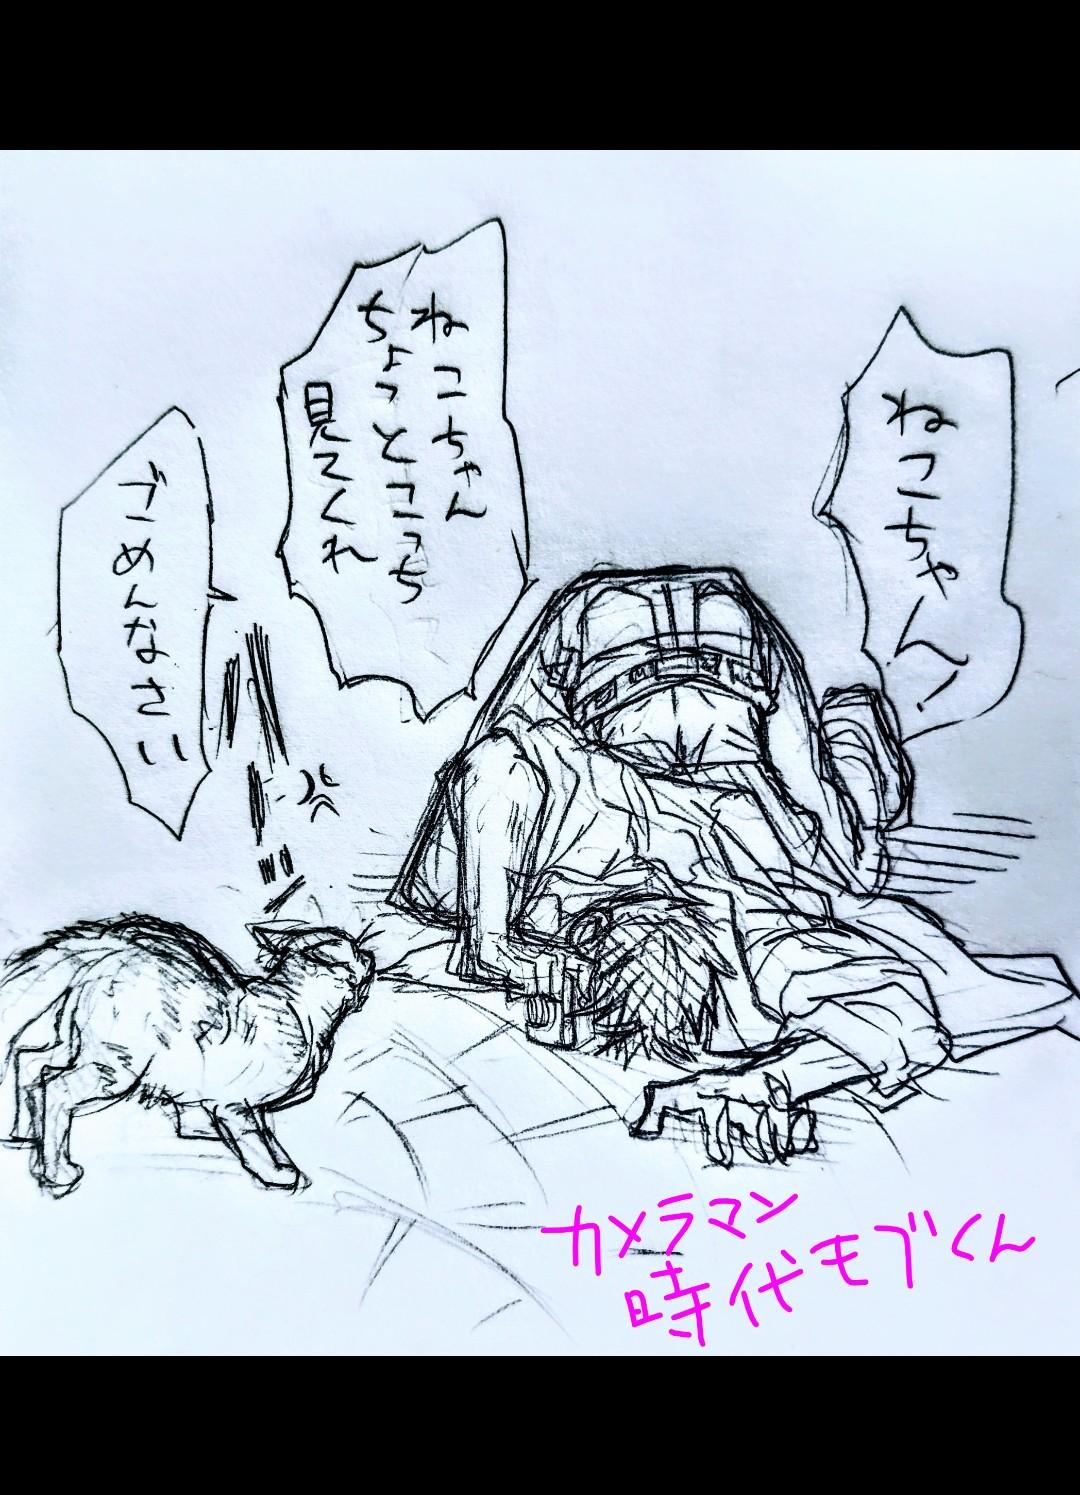 ねこちゃん!
ねこちゃん
ちょっとこっち
見てくれ
ごめんなさい
カメラマン
時代モブくん